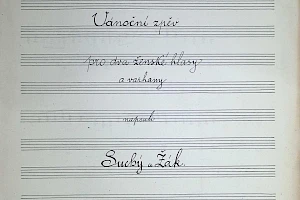 Vánoční zpěv
pro dva ženské hlasy
a varhany
napsali
Suchý a Žák.